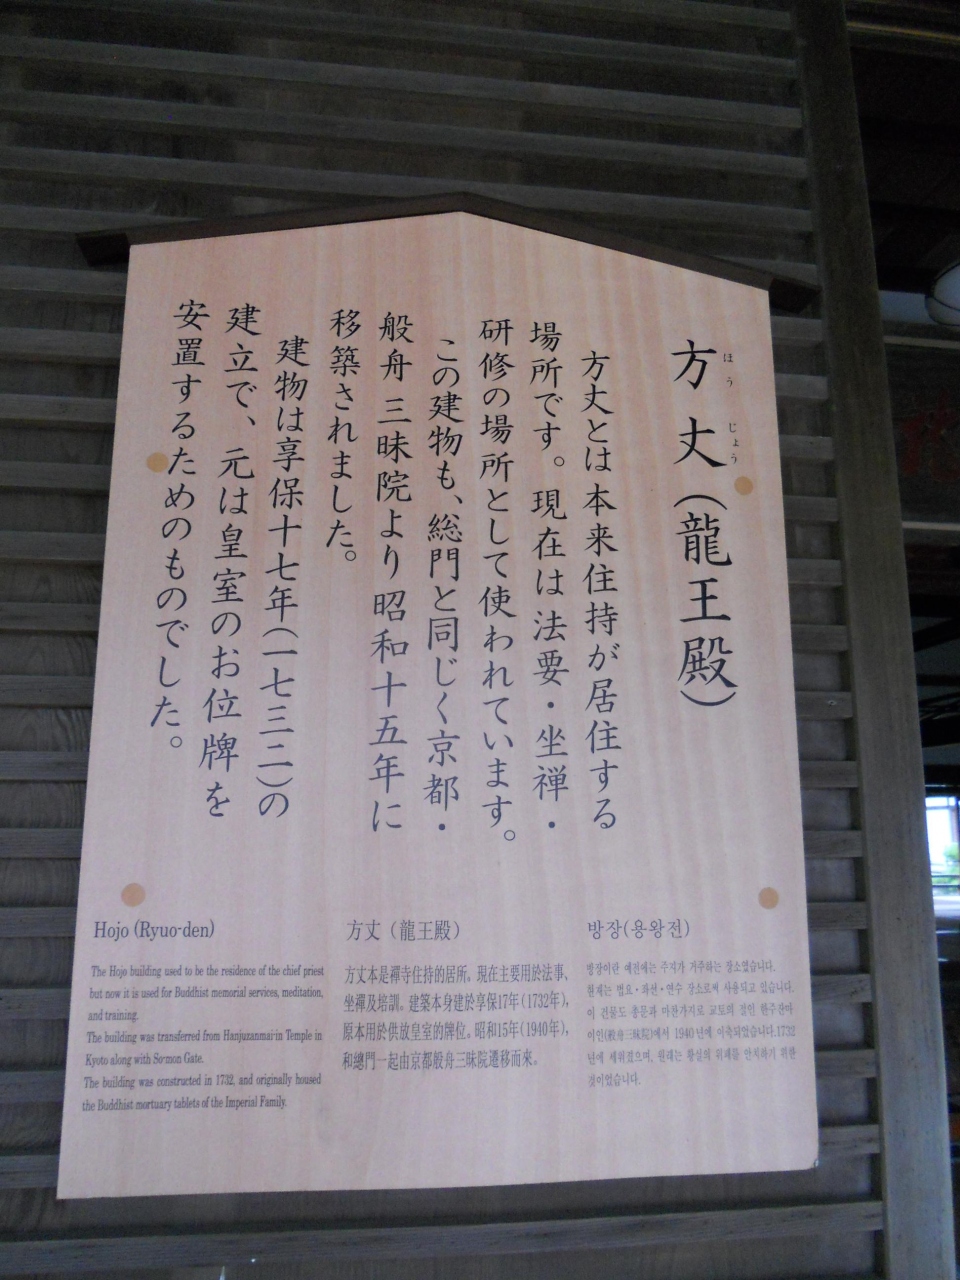 方丈（龍王殿）
ほうじょう
方丈とは本来住持が居住する
場所です。現在は法要・坐禅・
研修の場所として使われています。
この建物も、総門と同じく京都・
般舟三昧院より昭和十五年に
移築されました。
建物は享保十七年（一七三二）の
建立で、元は皇室のお位牌を
安置するためのものでした。
Hojo (Ryuo-den)
The Hojo building used to be the residence of the chief priest
but now it is used for Buddhist memorial services, meditation,
and training.
The building was transferred from Hanjuzanmai-in Temple in
Kyoto along with So-mon Gate.
The building was constructed in 1732, and originally housed
the Buddhist mortuary tablets of the Imperial Family.
方丈（龍王殿）
方丈本是禪寺住持的居所。現在主要用於法事、
坐禪及培訓。建築本身建於享保17年(1732年)，
原本用於供放皇室的牌位。昭和15年(1940年)，
和總門一起由京都般舟三昧院遷移而來。
방장(용왕전)
방장이란 예전에는 주지가 거주하는 장소였습니다.
현재는 법요・좌선・연수 장소로써 사용되고 있습니다.
이 건물도 총문과 마찬가지로 교토의 절인 한주잔마
이인(般舟三昧院)에서 1940년에 이축되었습니다.1732
년에 세워졌으며, 원래는 황실의 위패를 안치하기 위한
것이었습니다.